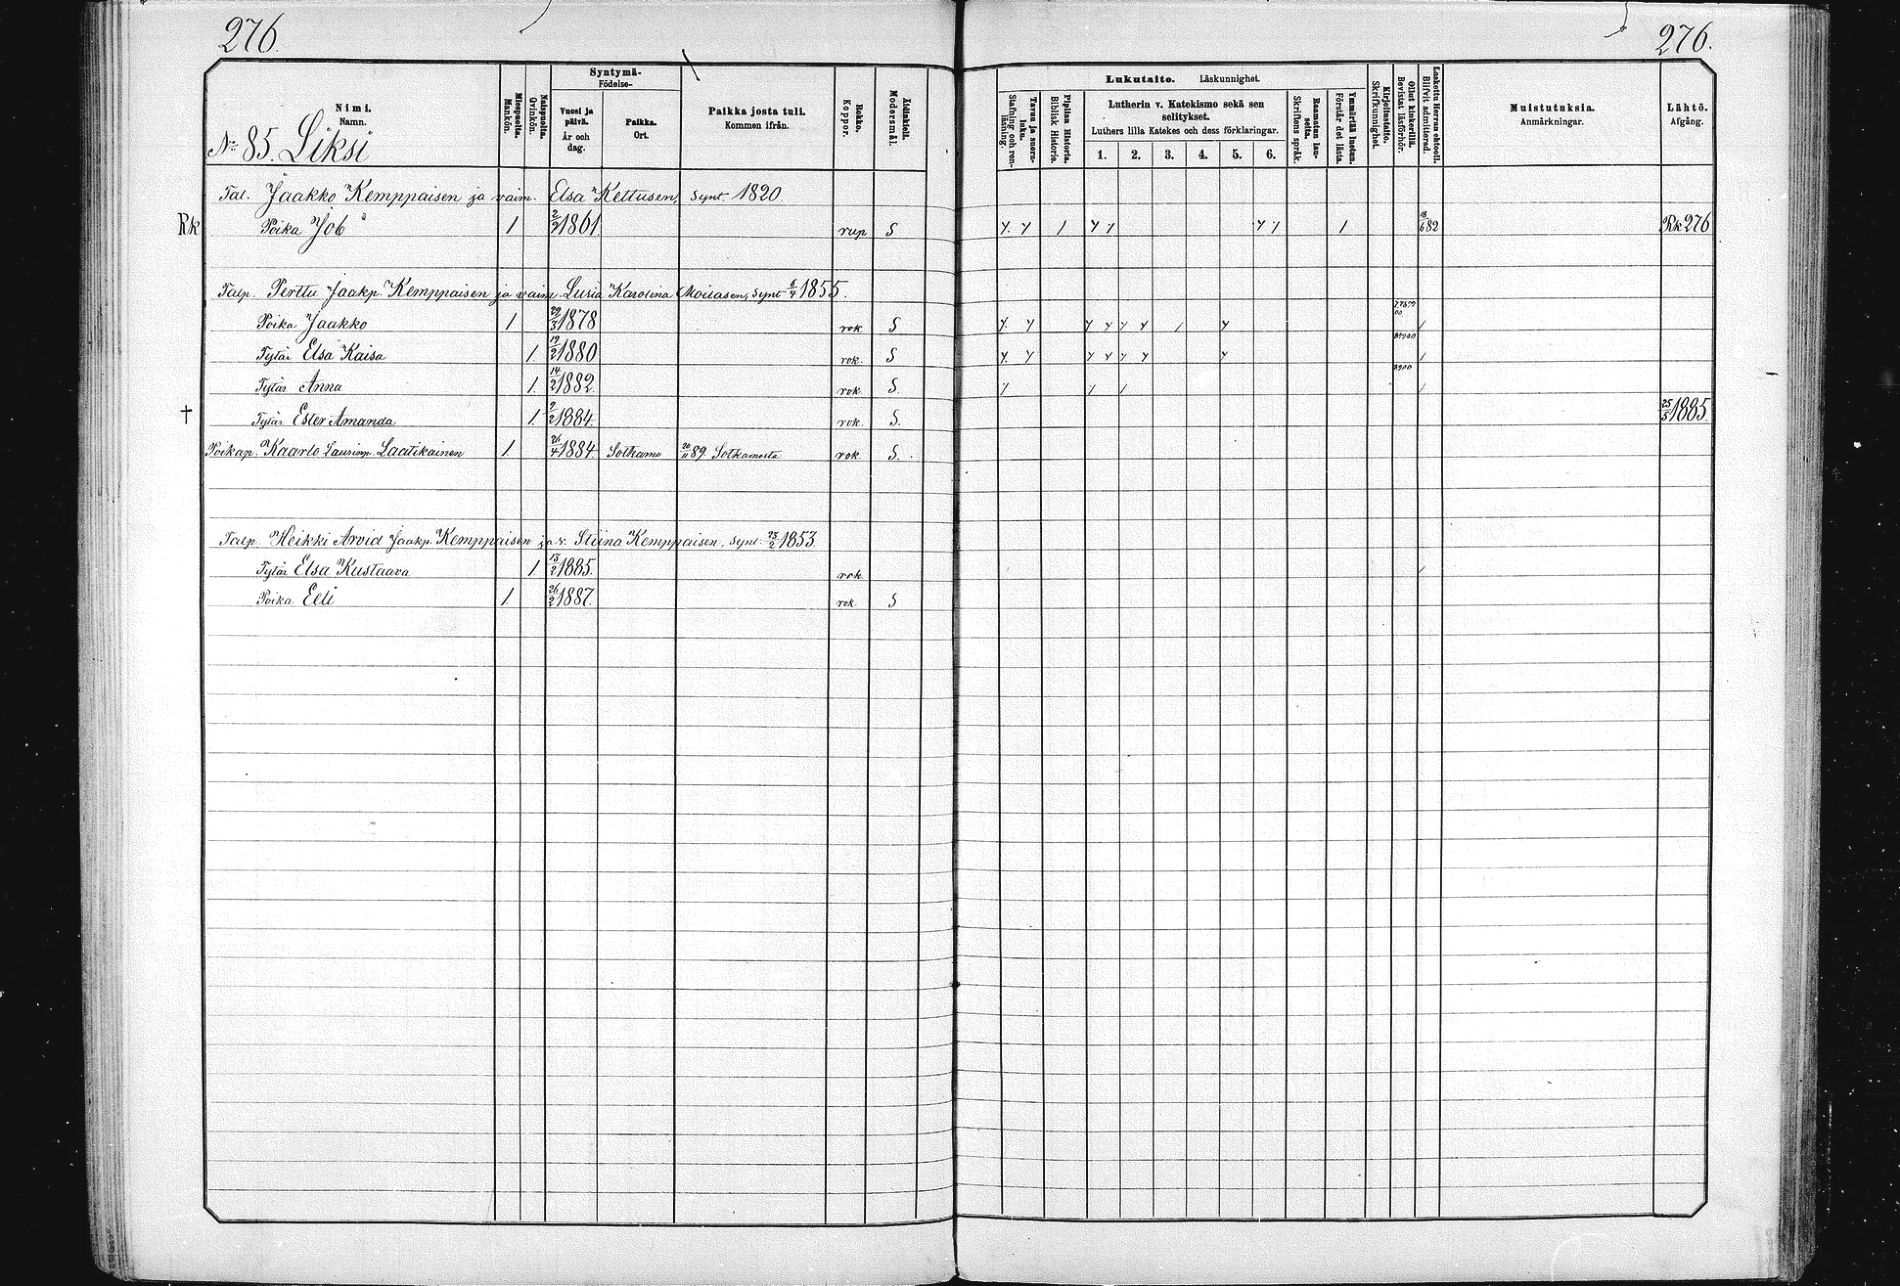 276.
276.
Nimi.
Namn.
No 85. Liksi
Miespuolta.
Mankön.
Naispuolta.
Qvinkön.
Syntymä-
Födelse-
Vuosi ja päivä.
År och dag.
Paikka.
Ort.
Paikka josta tuli.
Kommen ifrån.
Rokko.
Koppor.
Äidinkieli.
Modersmål.
Lukutaito. Läskunnighet.
Tavau ja suora-luku.
Stafning och ren-läsning.
Piplian Historia.
Biblisk Historia.
Lutherin v. Katekismo sekä sen selitykset.
Luthers lilla Katekes och dess förklaringar.
1. 2. 3. 4. 5. 6.
Raamatun lau-seita.
Skriftens språk.
Ymmärtää luetun.
Förstår det lästa.
Kirjoitustaito.
Skrifkunnighet.
Ollut kinkerillä.
Bevistat läsförhör.
Laskettu Herran ehtoool.
Blifvit admitterad.
Muistutuksia.
Anmärkningar.
Lähtö.
Afgång.
Tal. Jaakko Kemppaisen ja vaim. Elsa Kettusen, synt. 1820.
Rk Poika Job 1 2/2 1861 rup S 18/6 82 Rk 276
Talp. Perttu Jaakp. Kemppaisen ja vaim. Lusia Karolina Moilasen, synt 6/4 1855.
Poika Jaakko 1 29/3 1878 rok S
Tytär Elsa Kaisa 1. 19/2 1880 rok. S
Tytär Anna 1. 14/2 1882. rok S.
† Tytär Ester Amanda 1. 9/2 1884. rok. S. 25/5 1885.
Poikap. Kaarlo Laurinp. Laatikainen 1. 26/4 1884. Sotkamo 20/11 89 Sotkamosta rok. S.
Talp. Heikki Arvid Jaakp. Kemppaisen ja v. Stiina Kemppaisen, synt. 25/2 1853
Tytär Elsa Kustaava 1. 13/2 1885. rok
Poika Eeli 1. 26/2 1887. rok S